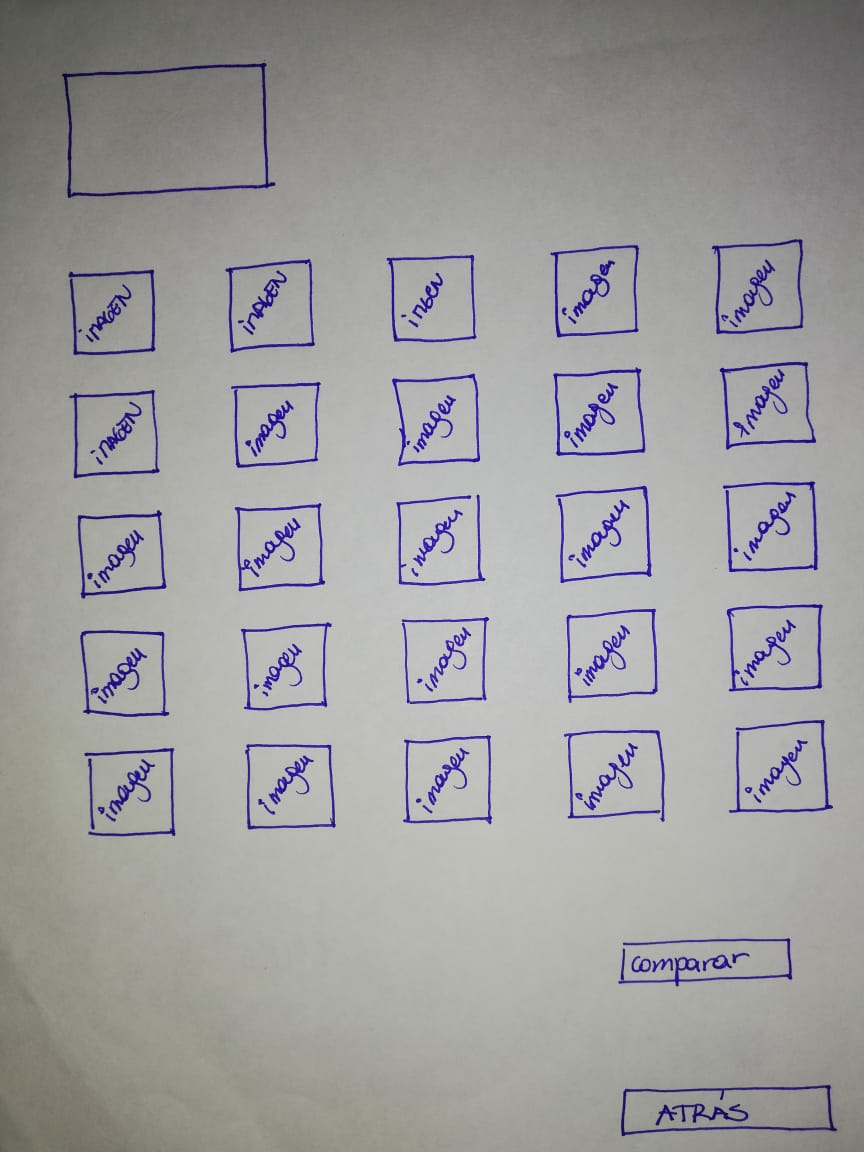 imAGEN imAGEN imGEN imagen imagen
imAGEN imagen imagen imagen imagen
imagen imagen imagen imagen imagen
imagen imagen imagen imagen imagen
imagen imagen imagen imagen imagen
comparar
ATRÁS